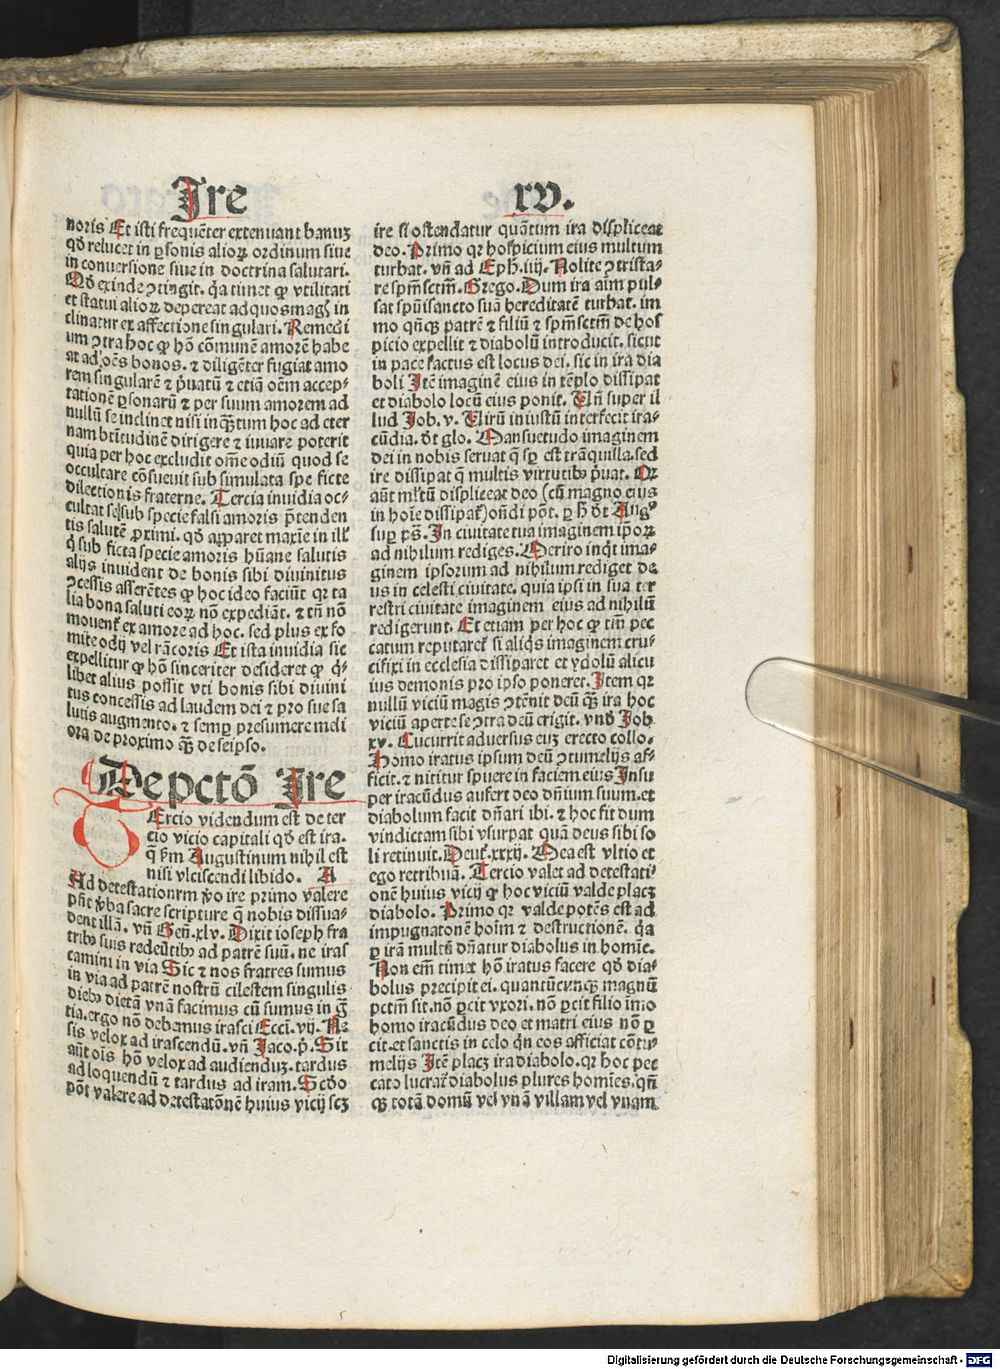 Ire
noris Et isti frequẽter extenuant banuʒ
qđ relucet in ꝑsonis alioꝝ ordinum siue
in conuersione siue in doctrina salutari.
Qđ exinde ꝯtingit. q̈a timet ꝙ vtilitati
et statui alioꝝ depereat ad quos magꝭ in
clinatur ex affectione singulari. Remedi
um ꝯtra hoc ꝙ hõ cõmunẽ amorẽ habe
at ad oẽs bonos. ⁊ diligẽter fugiat amo
rem singularẽ ⁊ p̃uatũ ⁊ etiã oẽm accep⸗
tationẽ ꝑsonarũ ⁊ per suum amorem ad
nullũ se inclinet nisi inq̃ʒtum hoc ad eter
nam btitudinẽ dirigere ⁊ iuuare poterit
quia per hoc excludit om̃e odiũ quod se
occultare cõsueuit sub simulata spe ficte
dilectionis fraterne. Tercia inuidia oc⸗
cultat se sub specie falsi amoris p̃tenden
tis salutẽ ꝓximi. qđ apparet maxĩe in ill̕
q̇ sub ficta specie amoris hũane salutis
alijs inuident de bonis sibi diuinitus
ꝯcessis asserẽtes ꝙ hoc ideo faciũt qꝛ ta
lia bona saluti eoꝝ nõ expediãt. ⁊ tñ nõ
mouent̕ ex amore ad hoc. sed plus ex fo
mite odij vel rãcoris Et ista inuidia sic
expellitur ꝙ hõ sinceriter desideret ꝙ q̇⸗
libet alius possit vti bonis sibi diuini
tus concessis ad laudem dei ⁊ pro sue sa
lutis augmento. ⁊ semꝑ presumere meli
ora de proximo q̃ʒ de seipso.
De pctõ Ire
TErcio videndum est de ter
cio vicio capitali qđ est ira.
q̃ s̃m Augustinum nihil est
nisi vlciscendi libido. A
Ad detestationrm v̊o ire primo valere
pñt v̊ba sacre scripture q̃ nobis dissua⸗
dent illã. vñ Geñ.xlv. Dixit ioseph fra
tribꝰ suis redeũtibꝰ ad patrẽ suũ. ne iras
camini in via Sic ⁊ nos fratres sumus
in via ad patrẽ nostrũ cilestem singulis
diebꝰ dietã vnã facimus cũ sumus in g̃r̃
tia. ergo nõ debemus irasci Ecci̕. vij. Ne
sis velox ad irascendũ. vñ Jaco. p̊. Sit
aũt ois̃ hõ velox ad audienduʒ. tardus
ad loquendũ ⁊ tardus ad iram. Scđo
põt valere ad detestatõnẽ huius vicij scʒ
xv.
ire si ostendatur quãtum ira displiceat
deo. Primo qꝛ hospicium eius multum
turbat. vñ ad Eph̃. iiij. Nolite ꝯtrista⸗
re spm̃ sctm̃. Grego. Dum ira aĩm pul⸗
sat spũi sancto suã hereditatẽ turbat. im
mo qñqʒ patrẽ ⁊ filiũ ⁊ spm̃ sctm̃ de hos
picio expellit ⁊ diabolũ introducit. sicut
in pace factus est locus dei. sic in ira dia
boli Itẽ imaginẽ eius in tẽplo dissipat
et diabolo locũ eius ponit. Vñ super il
lud Job. v. Virũ iniustũ interfecit ira⸗
cũdia. đt glo. Mansuetudo imaginem
dei in nobis seruat q̃ sꝑ est trãquilla. sed
ire dissipat q̃ multis virtutibꝰ p̃uat. Qꝛ
aũt ml̕tũ displiceat deo (cũ magno eius
in hoĩe dissipat̕) oñdi põt. ꝑ h̃ đt Augꝰ
suꝑ ps̃. In ciuitate tua imaginem ipoꝝ
ad nihilum rediges. Merito inq̇t ima⸗
ginem ipsorum ad nihilum rediget de
us in celesti ciuitate. quia ipsi in sua ter
restri ciuitate imaginem eius ad nihilũ
redigerunt. Et etiam per hoc ꝙ tm̃ pec
catum reputaret̕ si aliq̇s imaginem cru⸗
cifixi in ecclesia dissiparet et ydolũ alicu
ius demonis pro ipso poneret. Item qꝛ
nullũ viciũ magis ꝯtẽnit deũ q̃ʒ ira hoc
viciũ aperte se ꝯtra deũ erigit. vnđ Job
xv. Cucurrit aduersus euʒ erecto collo.
Homo iratus ipsum deũ ꝯtumelijs af⸗
ficit. ⁊ nititur spuere in faciem eius Insu
per iracũdus aufert deo dñium suum. et
diabolum facit dñari ibi. ⁊ hoc fit dum
vindictam sibi vsurpat quã deus sibi so
li retinuit. Deut̕. xxxij. Mea est vltio et
ego retribuã. Tercio valet ad detestati⸗
onẽ huius vicij ꝙ hoc viciũ valde placʒ
diabolo. Primo qꝛ valde potẽs est ad
impugnatonẽ hoĩm ⁊ destructionẽ. q̈a
ꝑ irã multũ dñatur diabolus in homĩe.
Non em̃ timet hõ iratus facere qđ dia⸗
bolus precipit ei. quantũcunqʒ magnũ
pctm̃ sit. nõ ꝑcit vxori. nõ ꝑcit filio ĩmo
homo iracũdus deo et matri eius nõ ꝑ
cit. et sanctis in celo q̇n eos afficiat cõtu⸗
melijs Itẽ placʒ ira diabolo. qꝛ hoc pec
cato lucrat̕ diabolus plures homĩes. qñ
qʒ totã domũ vel vnã villam vel vnam
Digitalisierung gefördert durch die Deutsche Forschungsgemeinschaft - DFG